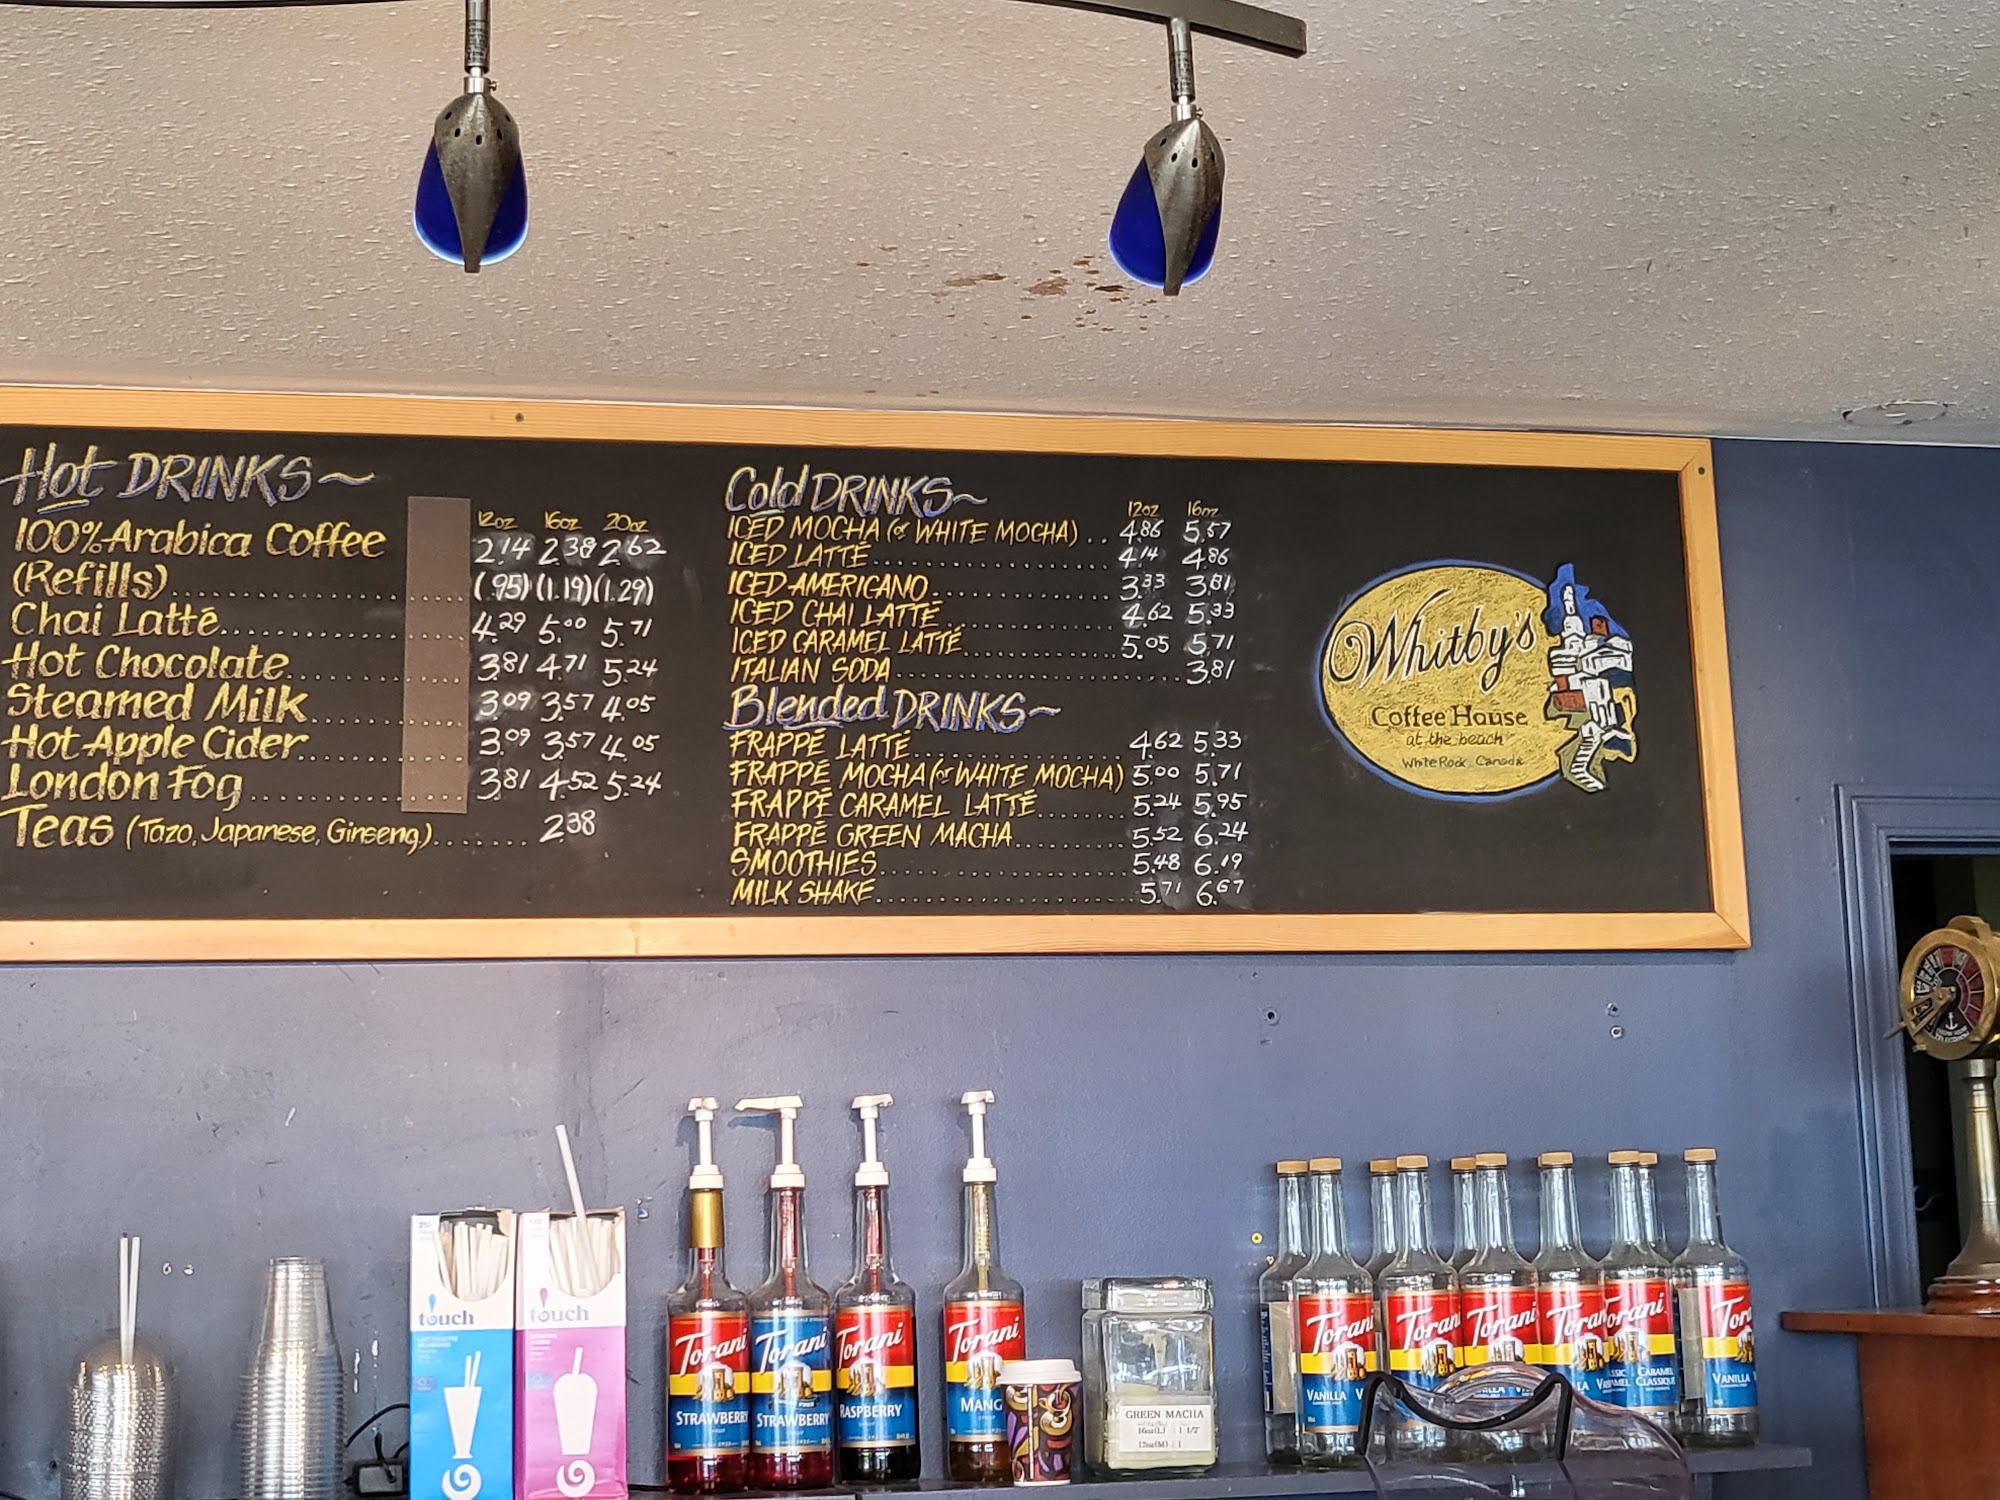 Hot DRINKS~
12oz 16oz 20oz
100% Arabica Coffee 2.14 2.38 2.62
(Refills) (.95) (1.19) (1.29)
Chai Latté 4.29 5.00 5.71
Hot Chocolate 3.81 4.71 5.24
Steamed Milk 3.09 3.57 4.05
Hot Apple Cider 3.09 3.57 4.05
London Fog 3.81 4.52 5.24
Teas (Tazo, Japanese, Ginseng) 2.38
Cold DRINKS~
12oz 16oz
ICED MOCHA (or WHITE MOCHA) 4.86 5.57
ICED LATTÉ 4.14 4.86
ICED AMERICANO 3.33 3.81
ICED CHAI LATTÉ 4.62 5.33
ICED CARAMEL LATTÉ 5.05 5.71
ITALIAN SODA 3.81
Blended DRINKS~
FRAPPÉ LATTÉ 4.62 5.33
FRAPPÉ MOCHA (or WHITE MOCHA) 5.00 5.71
FRAPPÉ CARAMEL LATTÉ 5.24 5.95
FRAPPÉ GREEN MACHA 5.52 6.24
SMOOTHIES 5.48 6.19
MILK SHAKE 5.71 6.67
Whitby's
Coffee House
at the beach
White Rock, Canada
touch
touch
Torani
STRAWBERRY
Torani
STRAWBERRY
Torani
RASPBERRY
Torani
MANG
GREEN MACHA
16oz(L) : 1 1/2
12oz(M) : 1
Torani
VANILLA
Torani
Torani
Torani
Torani
CARAMEL
CLASSIQUE
Torani
VANILLA